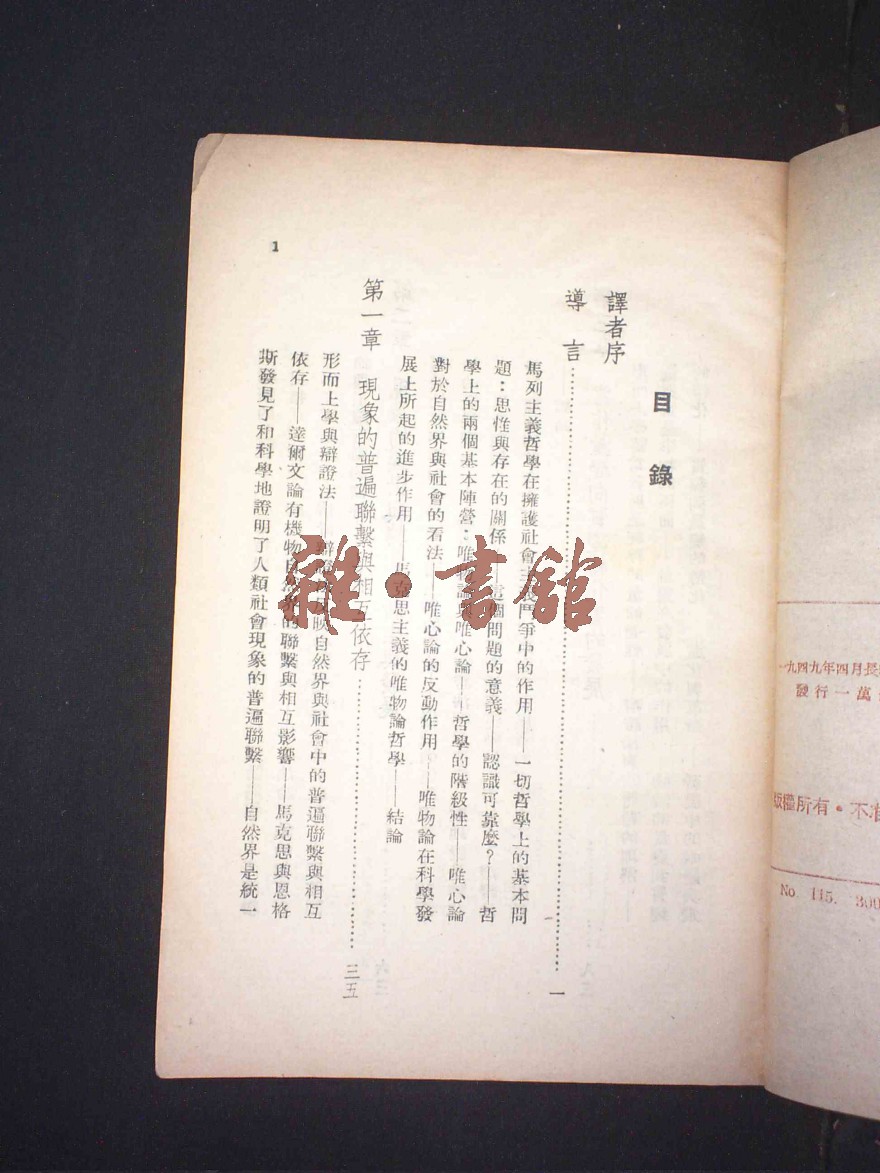 一九四九年四月長
發行一萬
版權所有·不准
No. 145. 300
目錄
譯者序
導言……一
馬列主義哲學在擁護社會主義鬥爭中的作用——一切哲學上的基本問
題：思惟與存在的關係——這個問題的意義——認識可靠麼？——哲
學上的兩個基本陣營：唯物論與唯心論——哲學的階級性——唯心論
對於自然界與社會的看法——唯心論的反動作用——唯物論在科學發
展上所起的進步作用——馬克思主義的唯物論哲學——結論
第一章 現象的普遍聯繫與相互依存……三五
形而上學與辯證法——辯證法反映自然界與社會中的普遍聯繫與相互
依存——達爾文論有機物自然界的聯繫與相互影響——馬克思與恩格
斯發見了和科學地證明了人類社會現象的普遍聯繫——自然界是統一
1
雜·書館